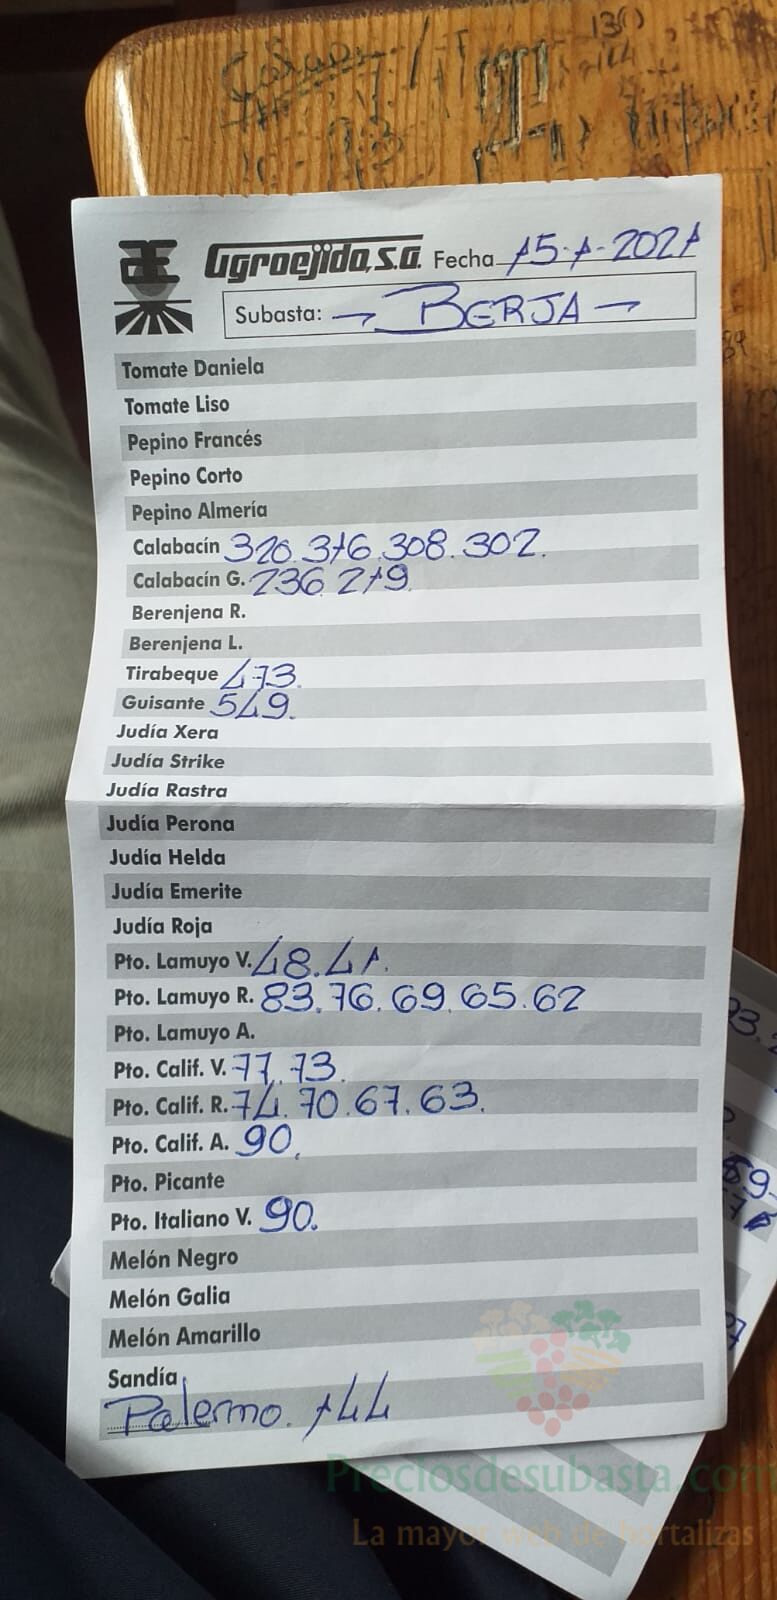 130
Agroejido, s.a. Fecha 15-1-2021
Subasta: → BERJA →
Tomate Daniela
Tomate Liso
Pepino Francés
Pepino Corto
Pepino Almería
Calabacín 320. 316. 308. 302.
Calabacín G. 236. 219
Berenjena R.
Berenjena L.
Tirabeque 473.
Guisante 549.
Judía Xera
Judía Strike
Judía Rastra
Judía Perona
Judía Helda
Judía Emerite
Judía Roja
Pto. Lamuyo V. 48. 41.
Pto. Lamuyo R. 83. 76. 69. 65. 62
Pto. Lamuyo A.
Pto. Calif. V. 77. 73.
Pto. Calif. R. 74. 70. 67. 63.
Pto. Calif. A. 90.
Pto. Picante
Pto. Italiano V. 90.
Melón Negro
Melón Galia
Melón Amarillo
Sandía
Palermo. 144
Preciosdesubasta.com
La mayor web de hortalizas